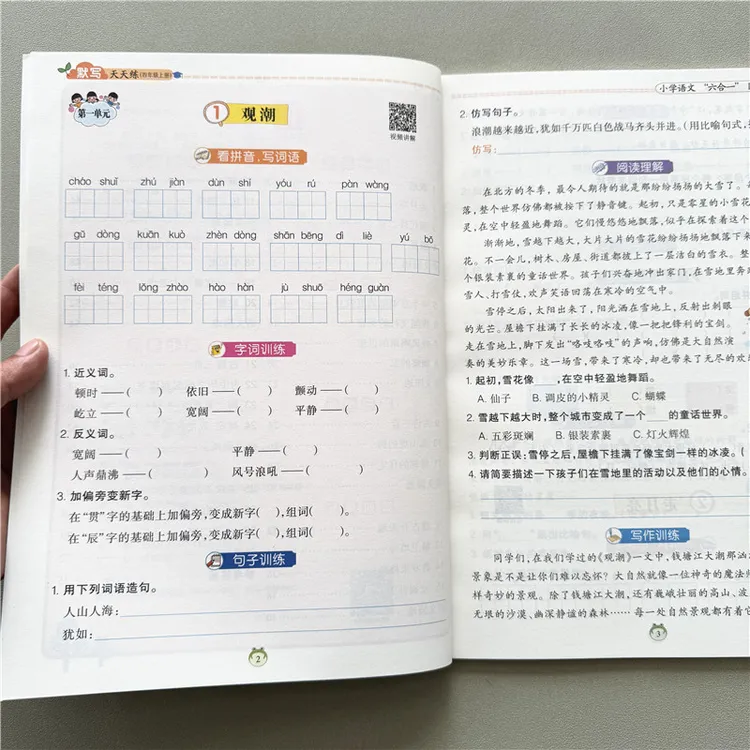 默写天天练(四年级上册)
第一单元
1 观潮
视频讲解
看拼音,写词语
cháo shuǐ zhú jiàn dùn shí yóu rú pàn wàng
gǔ dòng kuān kuò zhèn dòng shān bēng dì liè yú bō
fèi téng lǒng zhào hào hàn jù shuō héng guàn
字词训练
1. 近义词。
顿时——( ) 依旧——( ) 颤动——( )
屹立——( ) 宽阔——( ) 平静——( )
2. 反义词。
宽阔——( ) 平静——( )
人声鼎沸——( ) 风号浪吼——( )
3. 加偏旁变新字。
在“贯”字的基础上加偏旁,变成新字( ),组词( )。
在“辰”字的基础上加偏旁,变成新字( ),组词( )。
句子训练
1. 用下列词语造句。
人山人海:
犹如:
2
小学语文 “六合一”
2. 仿写句子。
浪潮越来越近,犹如千万匹白色战马齐头并进。(用比喻句式,
仿写:
阅读理解
在北方的冬季,最令人期待的就是那纷纷扬扬的大雪了。
落,整个世界仿佛都被按下了静音键。起初,只是零星的小雪花
灵,在空中轻盈地舞蹈。它们慢悠悠地飘落,似乎在探索着这个
渐渐地,雪越下越大,大片大片的雪花纷纷扬扬地飘落下来
花。不一会儿,树木、房屋、街道都披上了一层洁白的雪衣。整
个银装素裹的童话世界。孩子们兴奋地冲出家门,在雪地里奔跑
雪人、打雪仗,欢声笑语回荡在寒冷的空气中。
雪停之后,太阳出来了,阳光洒在雪地上,反射出刺眼
的光芒。屋檐下挂满了长长的冰凌,像一把把锋利的宝剑。
走在雪地上,脚下发出“咯吱咯吱”的声响,仿佛是大自然演
奏的美妙乐章。这一场雪,带来了寒冷,却也带来了无尽的欢
1. 起初,雪花像____,在空中轻盈地舞蹈。
A. 仙子 B. 调皮的小精灵 C. 蝴蝶
2. 雪越下越大时,整个城市变成了一个____的童话世界。
A. 五彩斑斓 B. 银装素裹 C. 灯火辉煌
3. 判断正误:雪停之后,屋檐下挂满了像宝剑一样的冰凌。(
4. 请简要描述一下孩子们在雪地里的活动以及他们的心情。
写作训练
同学们,在我们学过的《观潮》一文中,钱塘江大潮那
景象是不是让你们难以忘怀?大自然就像一位神奇的魔法师
样奇妙的景观。除了钱塘江大潮,还有巍峨壮丽的高山、波
无垠的沙漠、幽深静谧的森林……每一处自然景观都有着它
3